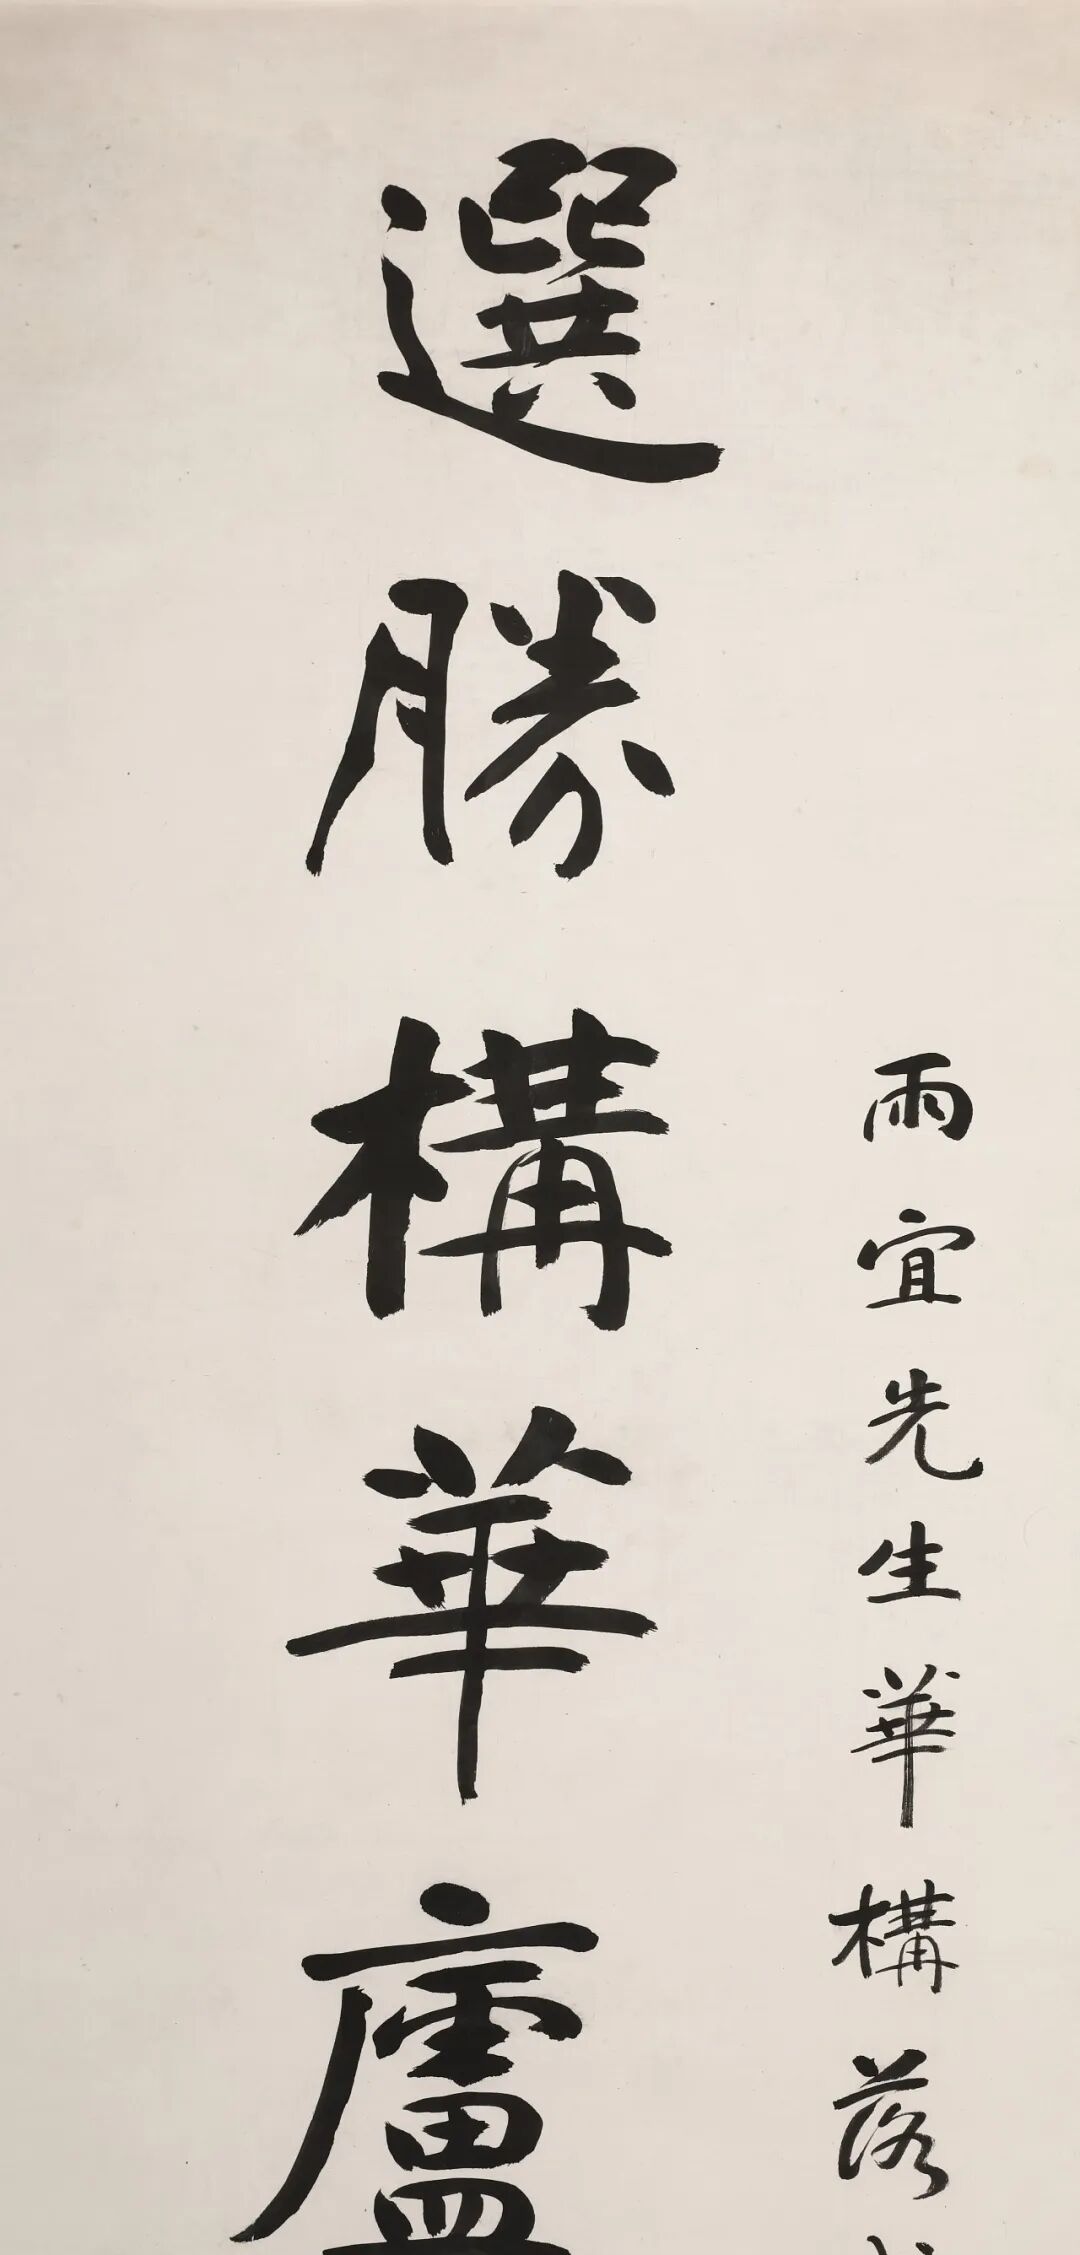 雨宜先生華構落
選勝構華廬